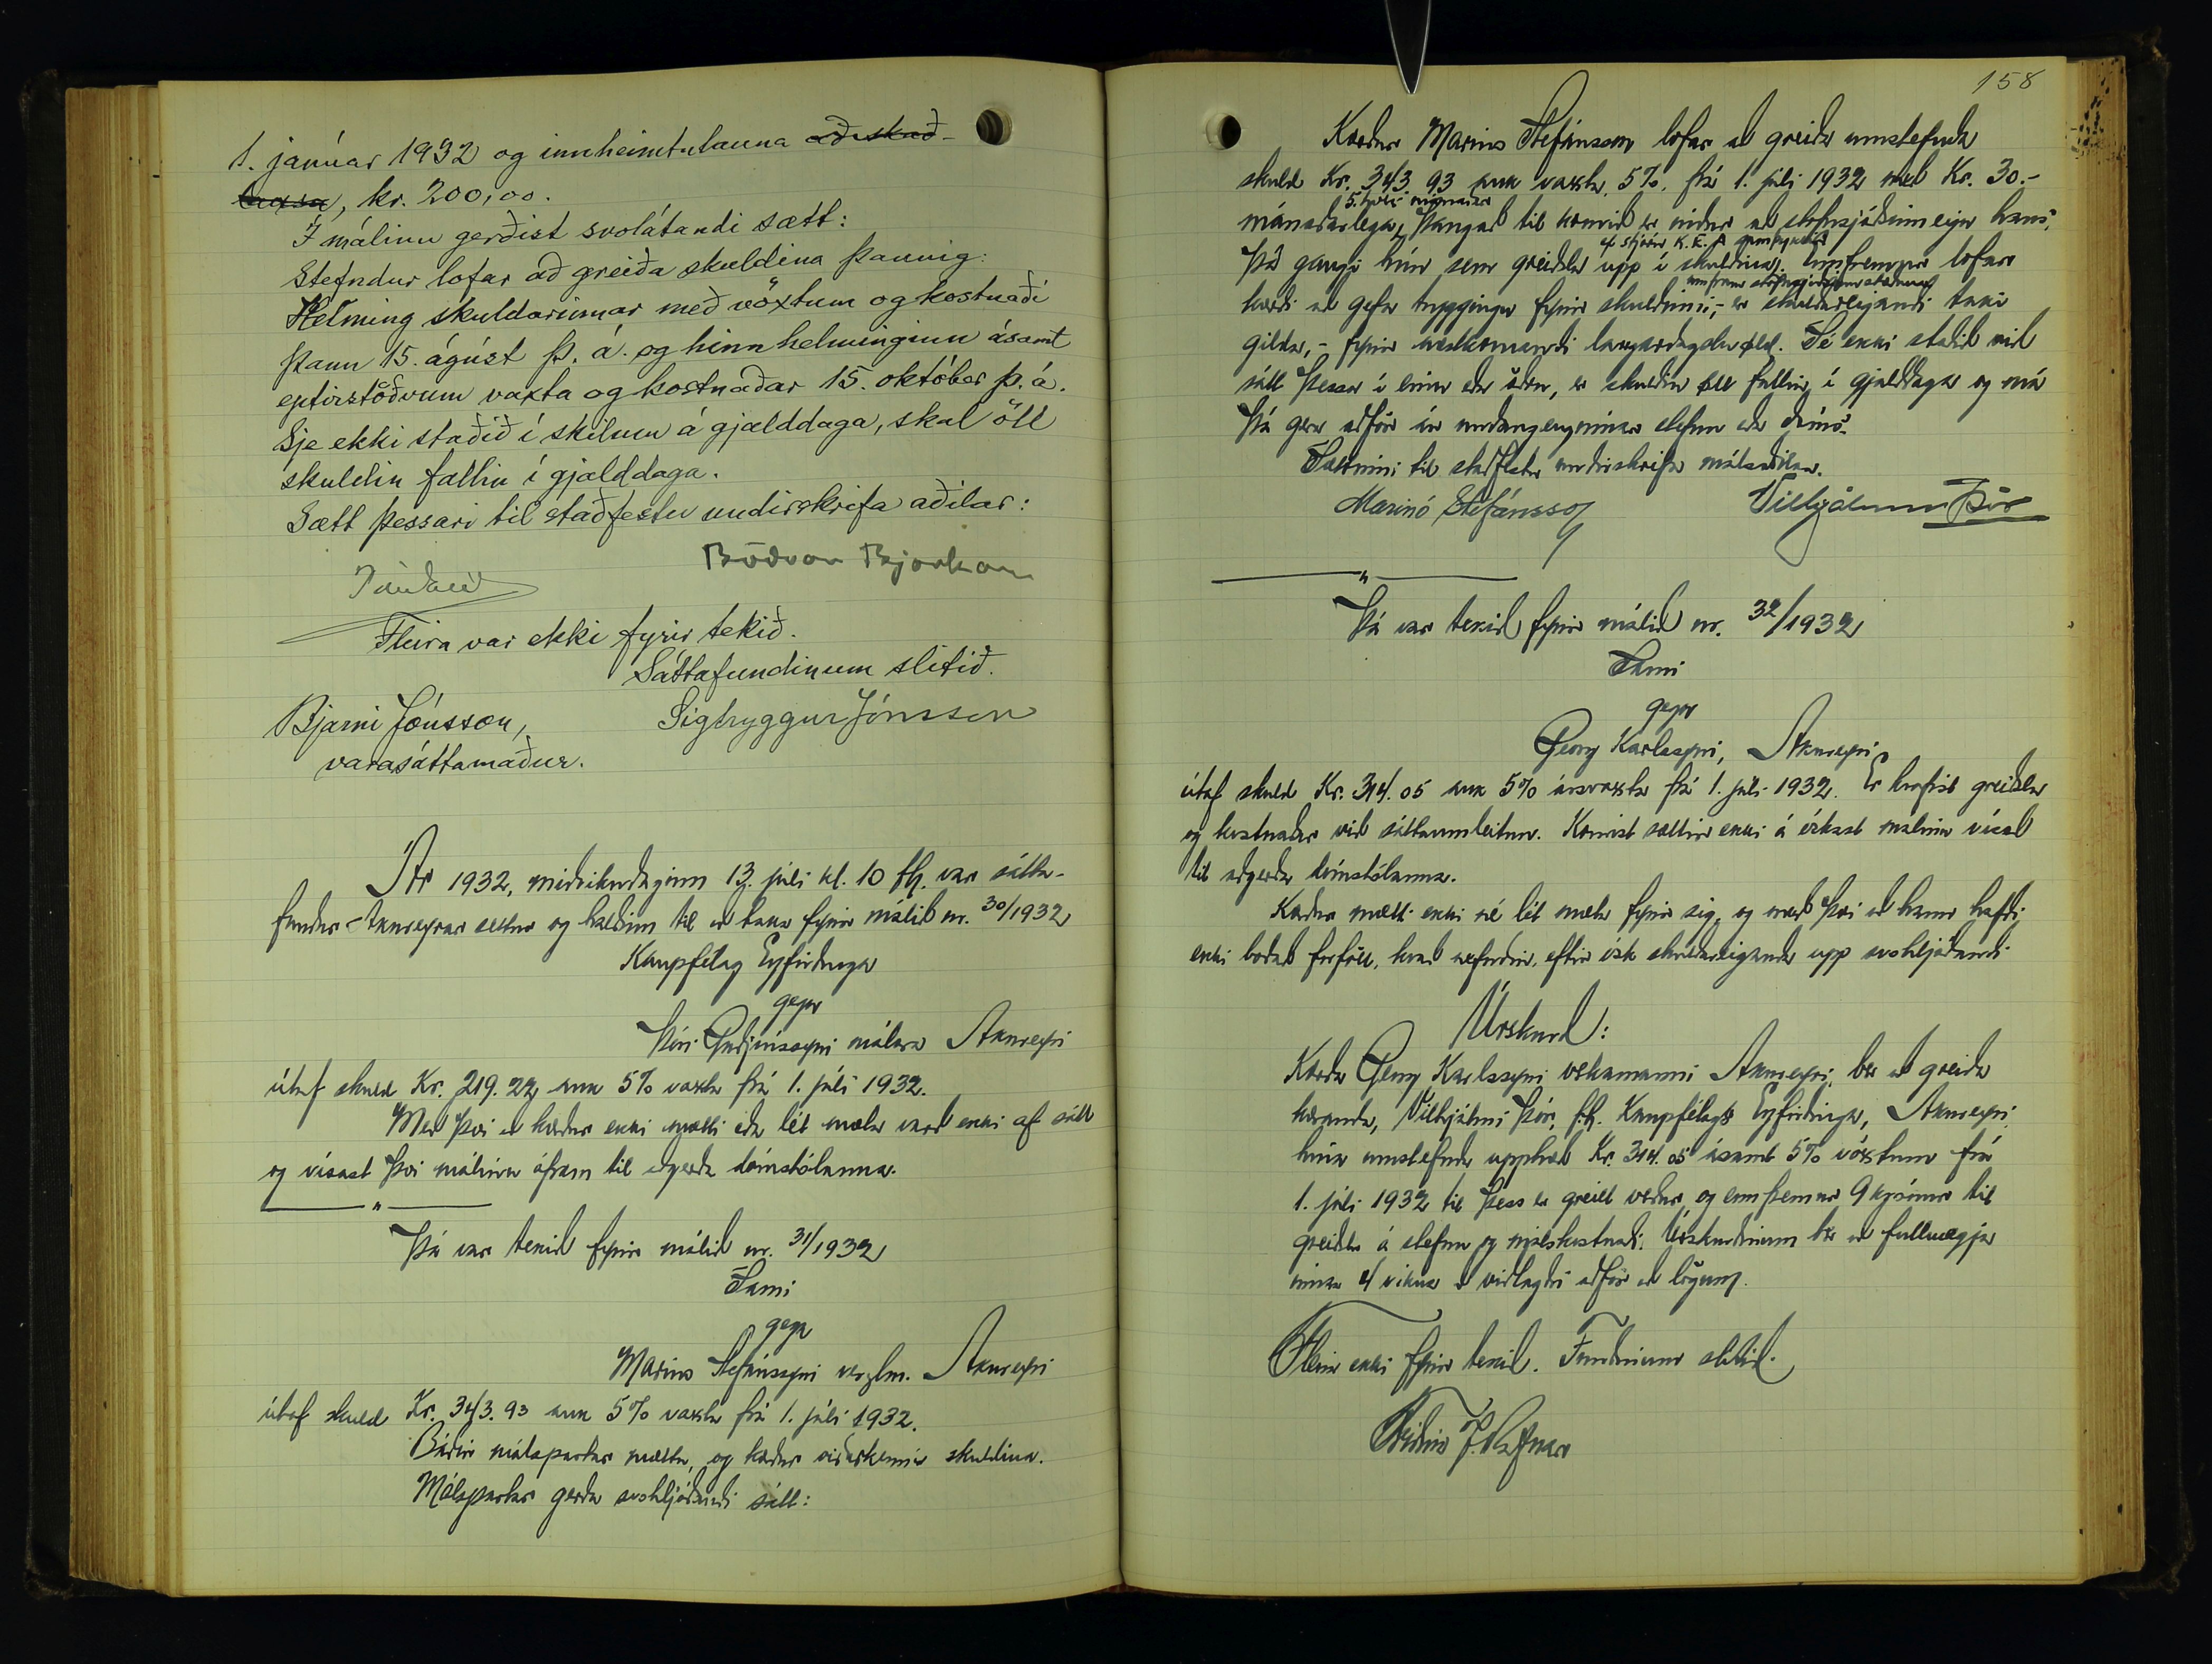 1. janúar 1932 og innheimtulauna að skað-
laxsa, kr. 200,00.
Í málinu gerðist svolátandi sætt:
Stefndur lofar að greiða skuldina þannig:
Helming skuldarinnar með vöxtum og kostnaði
þann 15. ágúst þ. á. og hinn helminginn ásamt
eptirstöðvum vaxta og kostnaðar 15. október þ. á.
Sje ekki staðið í skilum á gjalddaga, skal öll
skuldin fallin í gjalddaga.
Sætt þessari til staðfestu undirskrifa aðilar:
Böðvar Bjarkan
Fleira var ekki fyrir tekið.
Sáttafundinum slitið.
Bjarni Jónsson, Sigtryggur Jónsson
varasáttamaður.
Ár 1932, miðvikudaginn 13. júlí kl. 10 fh. var sátta-
fundur Akureyrar settur og haldinn til að taka fyrir málið nr. 30/1932
Kaupfélag Eyfirðinga
gegn
Þóri Guðjónssyni málara Akureyri
útaf skuld Kr. 219.22 auk 5% vaxta frá 1. júlí 1932.
Með því að kærður ekki mætti eða lét mæta varð ekki af sátt
og vísast því málinu áfram til aðgerða dómstólanna.
"
Þá var tekið fyrir málið nr. 31/1932
Sami
gegn
Marino Stefánssyni verzlm. Akureyri
útaf skuld Kr. 343.93 auk 5% vaxta frá 1. júlí 1932.
Báðir málspartar mættu, og kærður viðurkennir skuldina.
Málspartar gerðu svohljóðandi sátt:
158
Kærður Marino Stefánsson lofar að greiða umstefnda
skuld Kr. 343.93 auk vaxta, 5%, frá 1. júlí 1932 með Kr. 30.-
5. hvers mánaðar
mánaðarlega, þangað til komið er niður að stofnsjóðsinneign hans,
ef stjórn K.E.A samþykkir
þá gangi hún sem greiðsla upp í skuldina. Ennfremur lofar
umfram stofnsjóðsinnstæðuna
kærði að gefa tryggingu fyrir skuldinni, er skuldareigandi taki
gilda, - fyrir næstkomandi laugardagskvöld. Sé ekki staðið við
sátt þessa í einu eða öðru, er skuldin öll fallin í gjalddaga og má
þá gera aðför án undangenginnar stefnu eða dóms.
Sáttinni til staðfestu undirskrifa málsaðilar.
Marinó Stefánsson Vilhjálmur Þór
"
Þá var tekið fyrir málið nr. 32/1932
Sami
gegn
Georg Karlssyni, Akureyri
útaf skuld Kr. 314.05 auk 5% ársvaxta frá 1. júlí 1932. Er krafist greiðslu
og kostnaðar við sáttaumleitun. Komist sættir ekki á óskast málinu vísað
til aðgerða dómstólanna.
Kærður mætti ekki né lét mæta fyrir sig, og með því að hann hafði
ekki boðað forföll, kvað nefndin, eftir ósk skuldareiganda upp svohljóðandi
Úrskurð:
Kærða Georg Karlssyni verkamanni Akureyri, ber að greiða
kæranda, Vilhjálmi Þór, f.h. Kaupfélags Eyfirðinga, Akureyri,
hina umstefndu upphæð Kr. 314.05 ásamt 5% vöxtum frá
1. júlí 1932 til þess er greitt verður, og ennfremur 9 krónur til
greiðslu á stefnu og málskostnaði. Úrskurðinum ber að fullnægja
innan 4 vikna að viðlagðri aðför að lögum.
Fleira ekki fyrir tekið. Fundinum slitið.